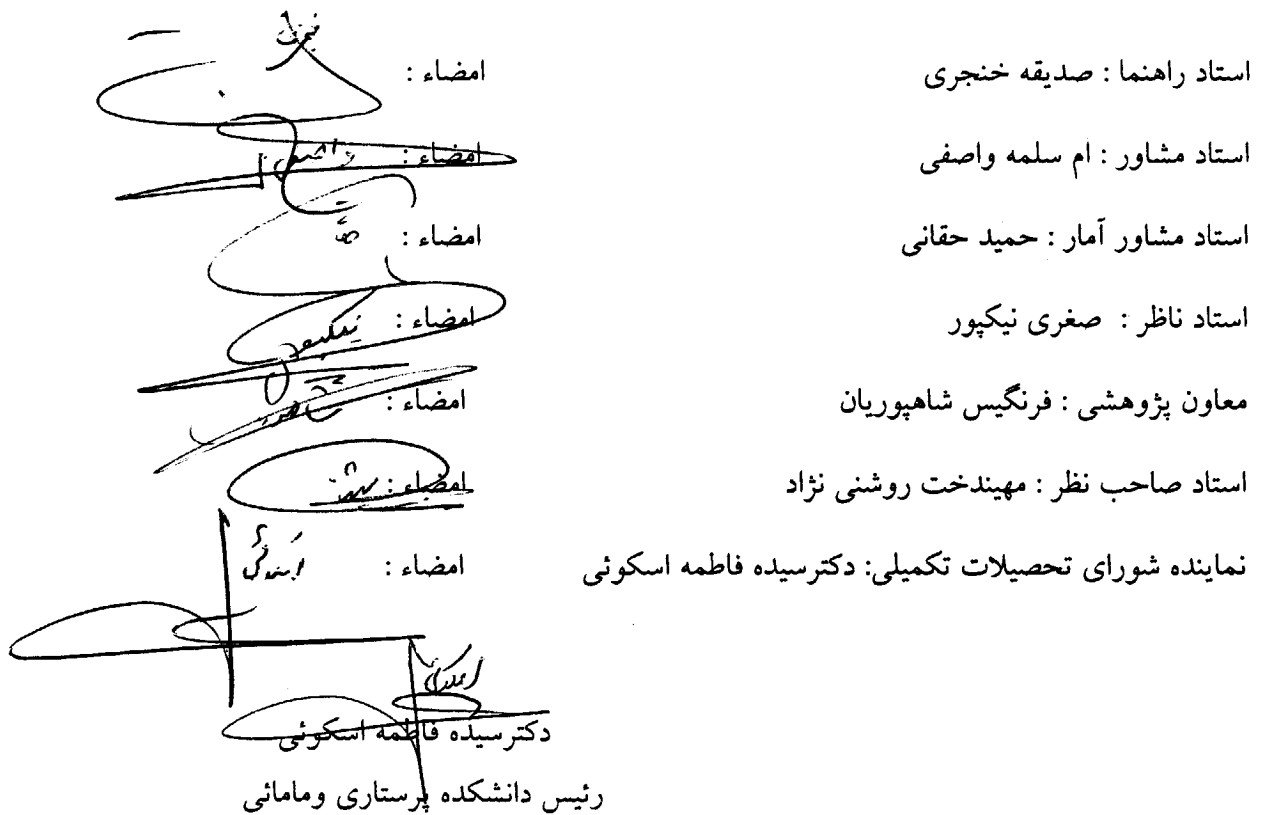 استاد راهنما : صدیقه خنجری امضاء :
استاد مشاور : ام سلمه واصفی امضاء :
استاد مشاور آمار : حمید حقانی امضاء :
استاد ناظر : صغری نیکپور امضاء : نیکپور
معاون پژوهشی : فرنگیس شاهپوریان امضاء :
استاد صاحب نظر : مهیندخت روشنی نژاد امضاء :
نماینده شورای تحصیلات تکمیلی: دکترسیده فاطمه اسکوئی امضاء :
دکترسیده فاطمه اسکوئی
رئیس دانشکده پرستاری ومامائی